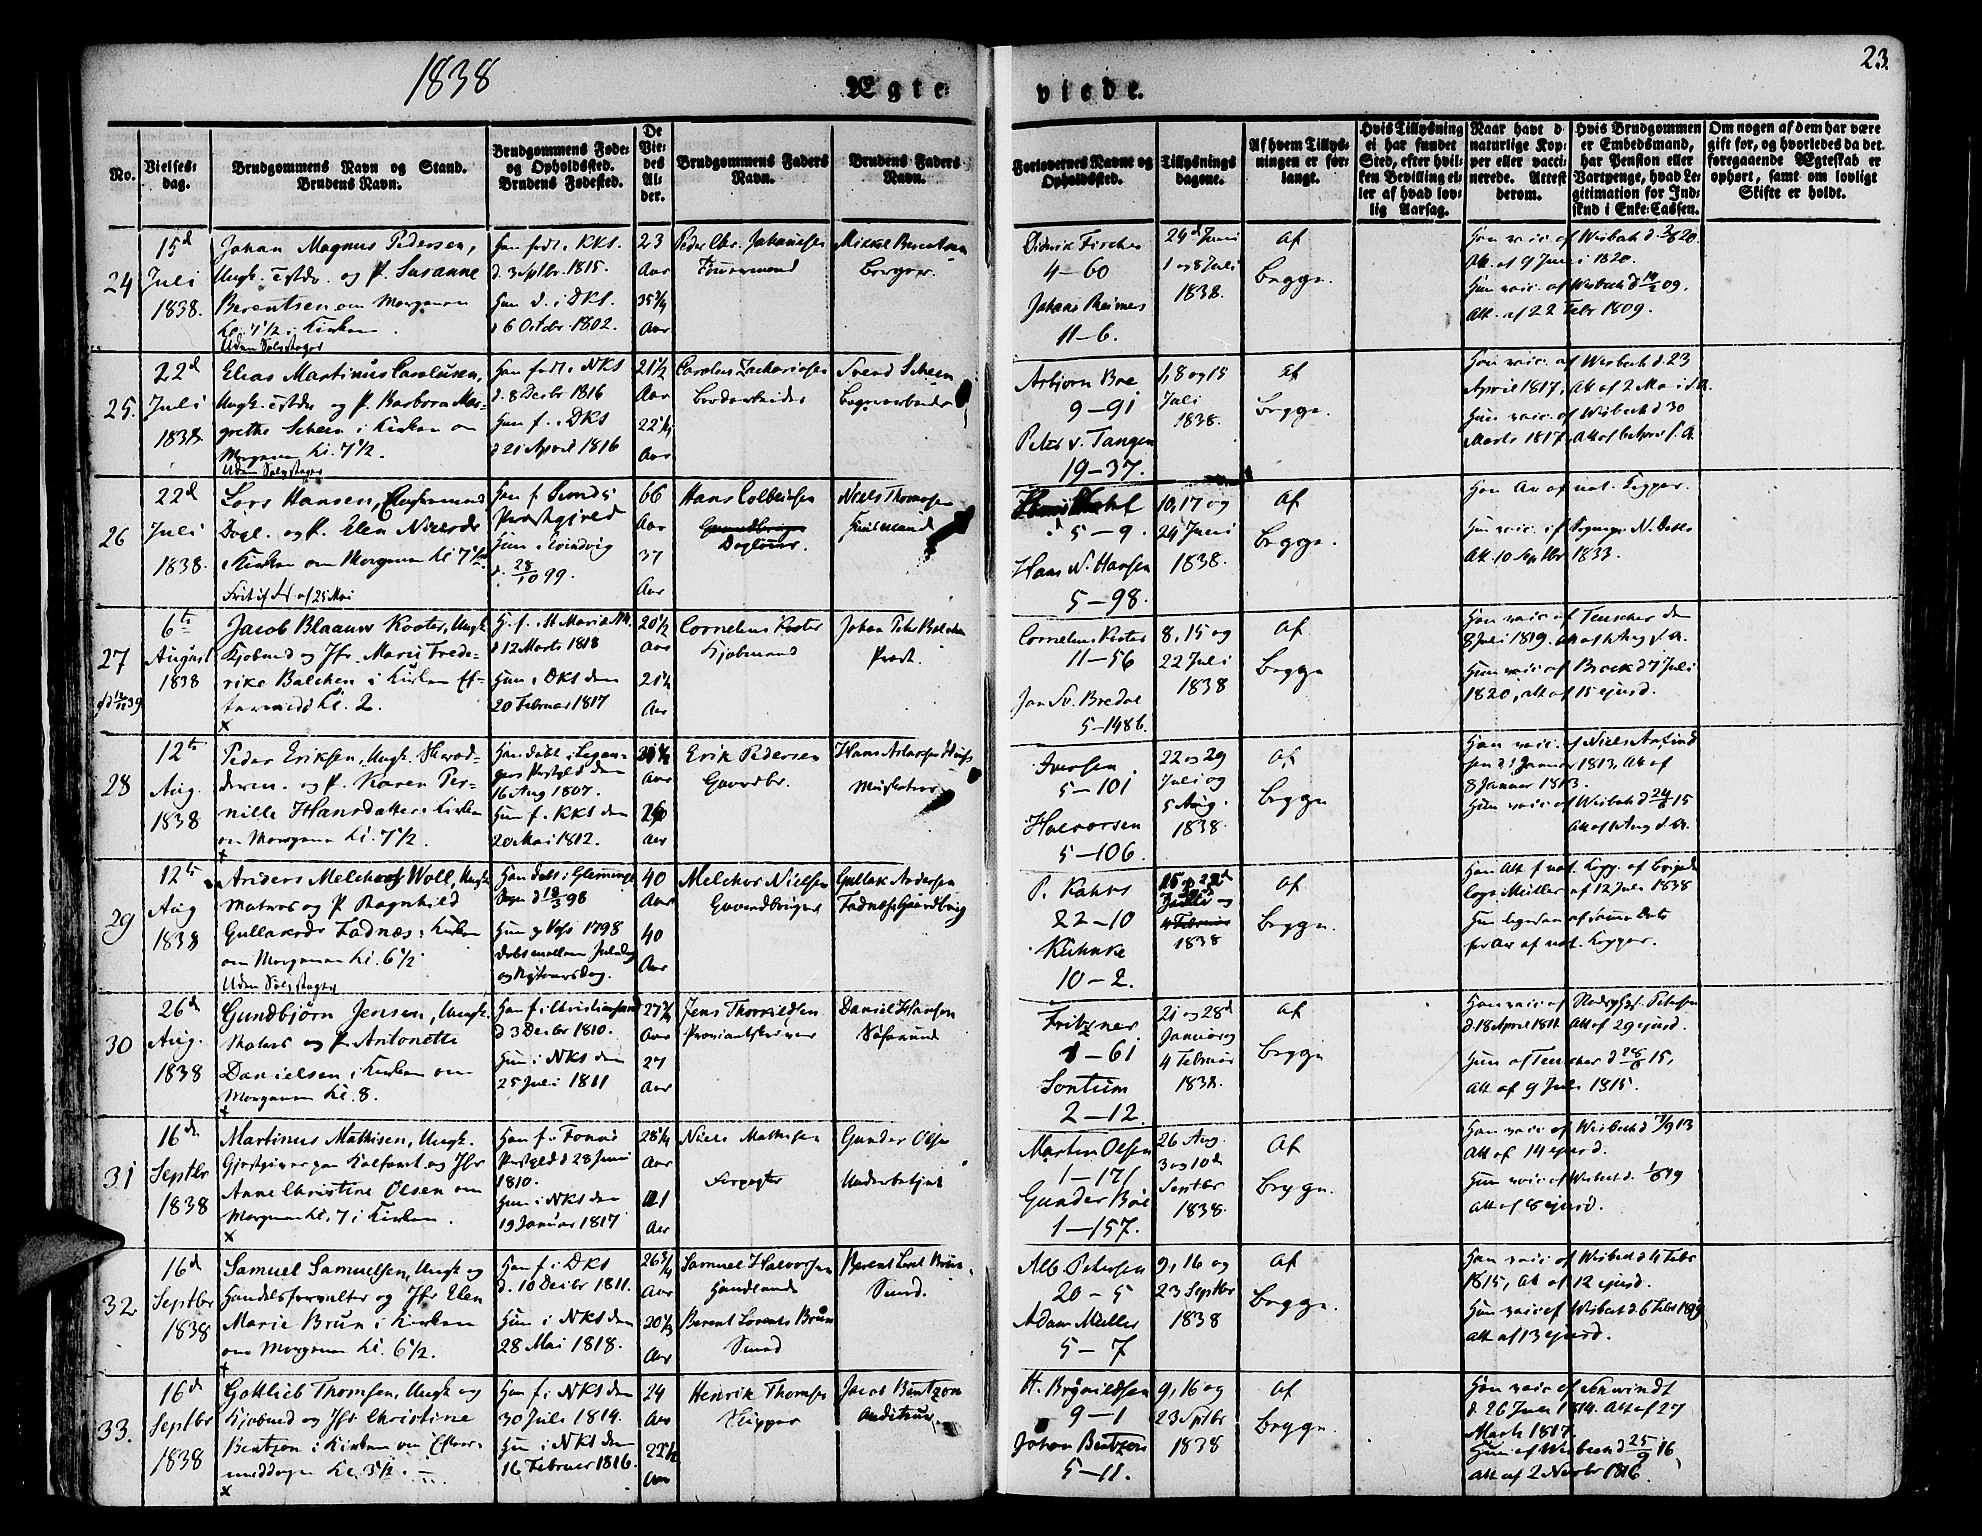 1838
Ægte
viede.
23.
No.
Vielses-
dag.
Brudgommens Navn og Stand.
Brudens Navn.
Brudgommens Føde-
og Opholdssted.
Brudens Fødested.
De
Vie-
des
Al-
der.
Brudgommens Faders
Navn.
Brudens Faders
Navn.
Forlovernes Navne og
Opholdssted.
Tillysnings
dagene.
Af hvem Tillys-
ningen er for-
langt.
Hvis Tillysning
ei har fundet
Sted, efter hvil-
ken Bevilling el-
ler af hvad lov-
lig Aarsag.
Naar havt d
naturlige Kop-
per eller vacci-
nerede. Attest
derom.
Hvis Brudgommen
er Embedsmand,
har Pension eller
Vartpenge, hvad Le-
gitimation for Ind-
skud i Enke-Cassen.
Om nogen af dem har være
gift for, og hvorledes da det
foregaaende Ægteskab er
ophørt, samt om lovligt
Skifte er holdt.
24
15d
Juli
1838.
Johan Magnus Pedersen,
Ungk. og P. Susanne
Berentsen om Morgenen
Kl. 7 1/2 i Kirken.
Han født i KKS.
d. 3 Septbr. 1815.
Hun d. i DKS.
d 6 Octbr. 1802.
23
Aar
35 3/4
Aar
Peder Chr. Johannesen
Mikkel Berentsen
Borger.
Didrik Fischer
4-60
Johans Reimers
11-6.
24d Juni
1 og 8 Juli
1838.
Af
Begge.
Han vacc. af Wisbech d 20.
Att. af 9 Juni 1820.
Hun vacc. af Wisbech d 09.
Att. af 22 Febr 1809.
25.
22d
Juli
1838.
Elias Martinus Carolusen,
Ungk. og P. Barbora Mar-
grethe Scheen i Kirken om
Morgenen Kl. 7 1/2.
Han født i NKS
d. 8 Decbr 1816
Hun f. i DKS
d 21 April 1816
21 1/2
Aar
22 1/4
Aar
Carolus Zachariasen
Bordarbeider
Svend Scheen
Arbjørn Boe
9-91
Peter v. Tangen
19-37.
1, 8 og 15
Juli
1838.
Af
Begge.
Han vacc. af Wisbech d. 23
April 1817, Att af 2 Mai s.A.
Hun vacc. af Wisbech d 30
Marts 1817, Att af 6 April s.A.
26
22d
Juli
1838.
Lars Hansen, Enkemand
Dagl. og P. Elen Nielsdr
i Kirken om Morgenen Kl 7 1/2
Frit af 25 Mai
Han f. Sunds
Præstegjeld
Hun i Evindvig
d. 28/10 99.
66
Aar
37
Aar
Hans Colbeinsen
Dagløner.
Niels Thomsen
Huusmand
5-9.
Hans N. Hansen
5-98.
10, 17 og
24 Juni
1838.
Af
Begge.
Han Ar af nat. Kopper.
Att 10 Septbr 1833.
27
6te
August
1838
Jacob Blaauw Koster, Ungk.
Kjøbmd og Jfr. Marie Frede-
rike Balchen i Kirken Ef-
termidd Kl. 2.
x
H. f. i M Maria Mk.
d 12 Marts 1818
Hun i DKS den
20 Februar 1817
20 1/2
Aar
21 1/2
Aar
Cornelius Koster
Kjøbmand
Johan Balchen
Præst.
Cornelius Koster
11-56
Jan Sv. Bredal
5-148b.
8, 15 og
22 Juli
1838
Af
Begge
Han vacc. af Teuscher den
8 Juli 1819. Att af 1 Aug s. A.
Hun vacc. af Brock d 7 Juli
1820, Att af 15 ejusd.
28
12te
Aug.
1838
Peder Eriksen, Ungk. Skræd-
dersv. og P. Karen Per-
nille Hansdatter i Kirken
om Morgenen Kl. 7 1/2.
x
Han døbt i Legan-
gers Prstgjld den
16 Aug 1807.
Hun f. KKS den
20 Mai 1812.
Aar
26
Aar
Erik Pedersen
Gaardbr.
Iversen
5-101
Halvorsen
5-106.
22 og 29
Juli og
5 Aug.
1838.
Af
Begge
Han vacc. af Niels Arfind
sen d 1 Januar 1813, Att af
8 Januar 1813.
Hun vacc. af Wisbech d 24/6 15
Att af 1 Aug s. A.
29
12te
Aug
1838
Anders Melchiors Woll, Ungk.
Matros og P. Ragnhild
Gullaksdr Fadnæs i Kirken
om Morgenen Kl. 6 1/2.
Han døbt i Glemminge
Sogn d 18/3 98
Hun p Voss 1798
døbt mellem Juledag
og Nytaarsdag.
40
Aar
40
Aar
Melchior Nielsen
Gaardbruger
Gullak Andersen
Fadnæs Gaardbrug
P. Kahrs
22-10
Kuhnke
10-2.
1838
Af
Begge.
Han Att f nat. Kopp. af Brigade
læge Müller af 12 Juli 1838
Hun ligesaa af samme Dato
for Ar af nat. Kopper.
30
26de
Aug.
1838
Gundbjørn Jensen, Ungk.
Matros og P. Antonette
Danielsen i Kirken om
Morgenen Kl. 8.
x
Han f. i Christiansand
d 3 Decbr 1810.
Hun i NKS den
25 Juli 1811
27 3/4
Aar
27
Aar
Jens Thorvildsen
Proviantskriver
Daniel Hansen
Søfarende
Fritzner
1-61
Sontum
2-12.
21 og 28d
Januar og
4 Februar
1838.
Af
Begge
d 18 April 1811. Att af 29 ejusd.
Hun af Teuscher d 28/6 15,
Att af 9 Juli 1815.
31
16de
Septbr
1838
Martinus Mathisen, Ungk.
Gjestgiver paa Kalfaret og Jfr
Anne Christine Olsen om
Morgenen Kl. 7 i Kirken.
x
Præstgjeld d 28 Juni
1810.
Hun i NKS den
19 Januar 1817
28 1/4
Aar
21
Aar
Niels Mathisen
Forpagter
Gunder Olsen
Underbetjent
Morten Olsen
1-171
Gunder Boe
1-157.
26 Aug.
3 og 10d
Septbr
1838.
Af
Begge.
Han vacc. af Wisbech d 7/9 13
Att af 14 ejusd.
Hun vacc af Wisbech d. 1/8 19
Att af 8 ejusd.
32
16d
Septbr
1838
Samuel Samuelsen, Ungk og
Handelsforvalter og Jfr Elen
Marie Brun i Kirken
om Morgenen Kl. 6 1/2.
x
Han f. i DKS
d. 10 Decbr 1811.
Hun i NKS den
28 Mai 1818.
26 3/4
Aar
20 1/3
Aar
Samuel Halvorsen
Handlende
Berent Lorents Brun
Smed
Berent Lorents Brun
Smed.
Alb. Petersen
20-5
Adam Müller
5-7
9, 16 og
23 Septbr
1838
Af
Begge.
Han vacc. af Wisbech d 4 Febr
1815, Att af 12 ejusd.
Hun vacc af Wisbech d 6 Febr 1819
Att af 13 ejusd.
33.
16d
Septbr
1838
Gottlieb Thomsen, Ungk og
Kjøbmd og Jfr Christine
Bentzon i Kirken om Efter-
middagen Kl. 3 1/2.
x
Han f. i NKS den
30 Juli 1814.
Hun i NKS den
16 Februar 1816.
24
Aar
22 1/2
Aar
Henrik Thomsen
Skipper
Jacob Bentzon
Auditeur
H. Brynildsen
9-1
Johan Bentzon
5-11.
9, 16 og
23 Sptbr
1838
Af
Begge.
Han vacc af Schwindt
d. 26 Juni 1814. Att af 27
Marts 1817.
Hun af Wisbech d 25/9 16,
Att af 2 Novbr 1816.